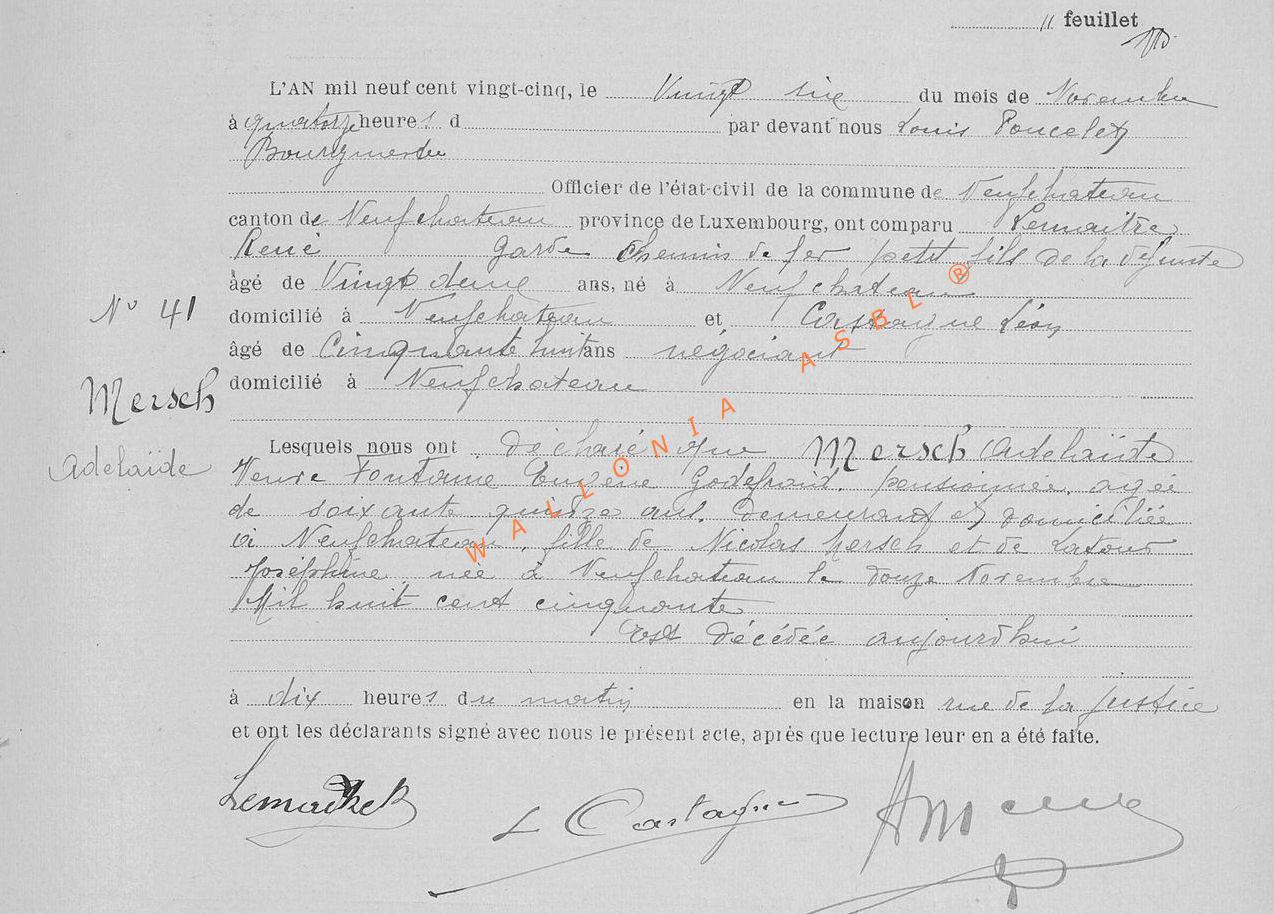 11 feuillet
L'AN mil neuf cent vingt-cinq, le Vingt six du mois de Novembre
à quatorze heures d par devant nous Louis Poncelet
Bourgmestre
Officier de l'état-civil de la commune de Neufchateau
canton de Neufchateau province de Luxembourg, ont comparu Lemaitre
René garde chemin de fer petit fils de la défunte
âgé de Vingt deux ans, né à Neufchateau
N° 41
domicilié à Neufchateau et Castagne Léon
âgé de Cinquante huit ans négociant
domicilié à Neufchateau
Mersch
Adelaïde
Lesquels nous ont déclaré que Mersch Adelaïde
Veuve Fontaine Eugène Godefroid, pensionnée, agée
de soixante quinze ans, demeurant et domiciliée
à Neufchateau, fille de Nicolas Mersch et de Latour
Josephine, née à Neufchateau le douze Novembre
Mil huit cent cinquante
est décédée aujourd'hui
à dix heures du matin en la maison rue de la Justice
et ont les déclarants signé avec nous le présent acte, après que lecture leur en a été faite.
L Castagne
WALLONIA ASBL ®